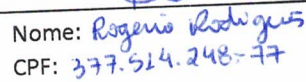 Nome: Rogerio Rodrigues
CPF: 377.514.248-77